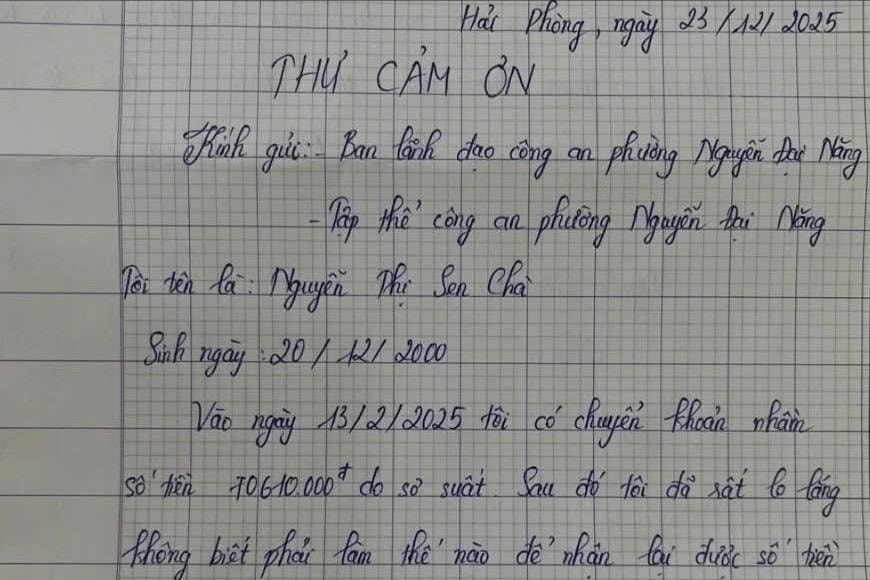 Hải Phòng, ngày 23/12/2025
THƯ CẢM ƠN
Kính gửi: - Ban lãnh đạo công an phường Nguyễn Đại Năng
- Tập thể công an phường Nguyễn Đại Năng
Tôi tên là: Nguyễn Thị Sen Chà
Sinh ngày: 20/12/2000
Vào ngày 13/2/2025 tôi có chuyển khoản nhầm
số tiền 70610.000đ do sơ suất. Sau đó tôi đã rất lo lắng
không biết phải làm thế nào để nhận lại được số tiền